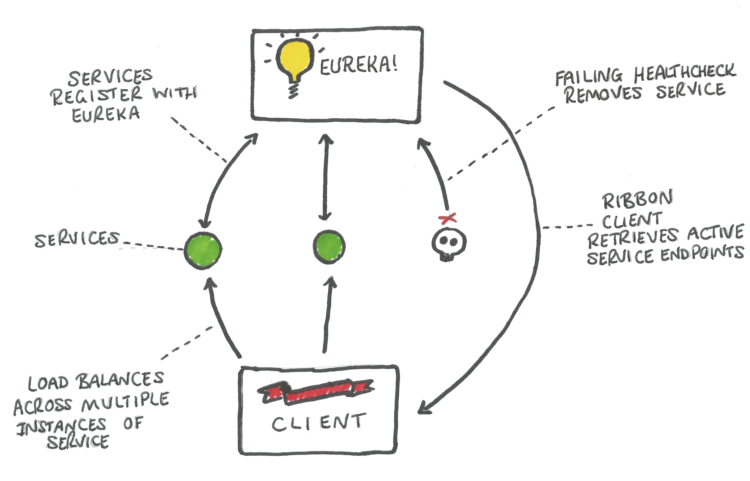 EUREKA!
SERVICES
REGISTER WITH
EUREKA
FAILING HEALTHCHECK
REMOVES SERVICE
RIBBON
CLIENT
RETRIEVES ACTIVE
SERVICE ENDPOINTS
SERVICES
LOAD BALANCES
ACROSS MULTIPLE
INSTANCES OF
SERVICE
CLIENT